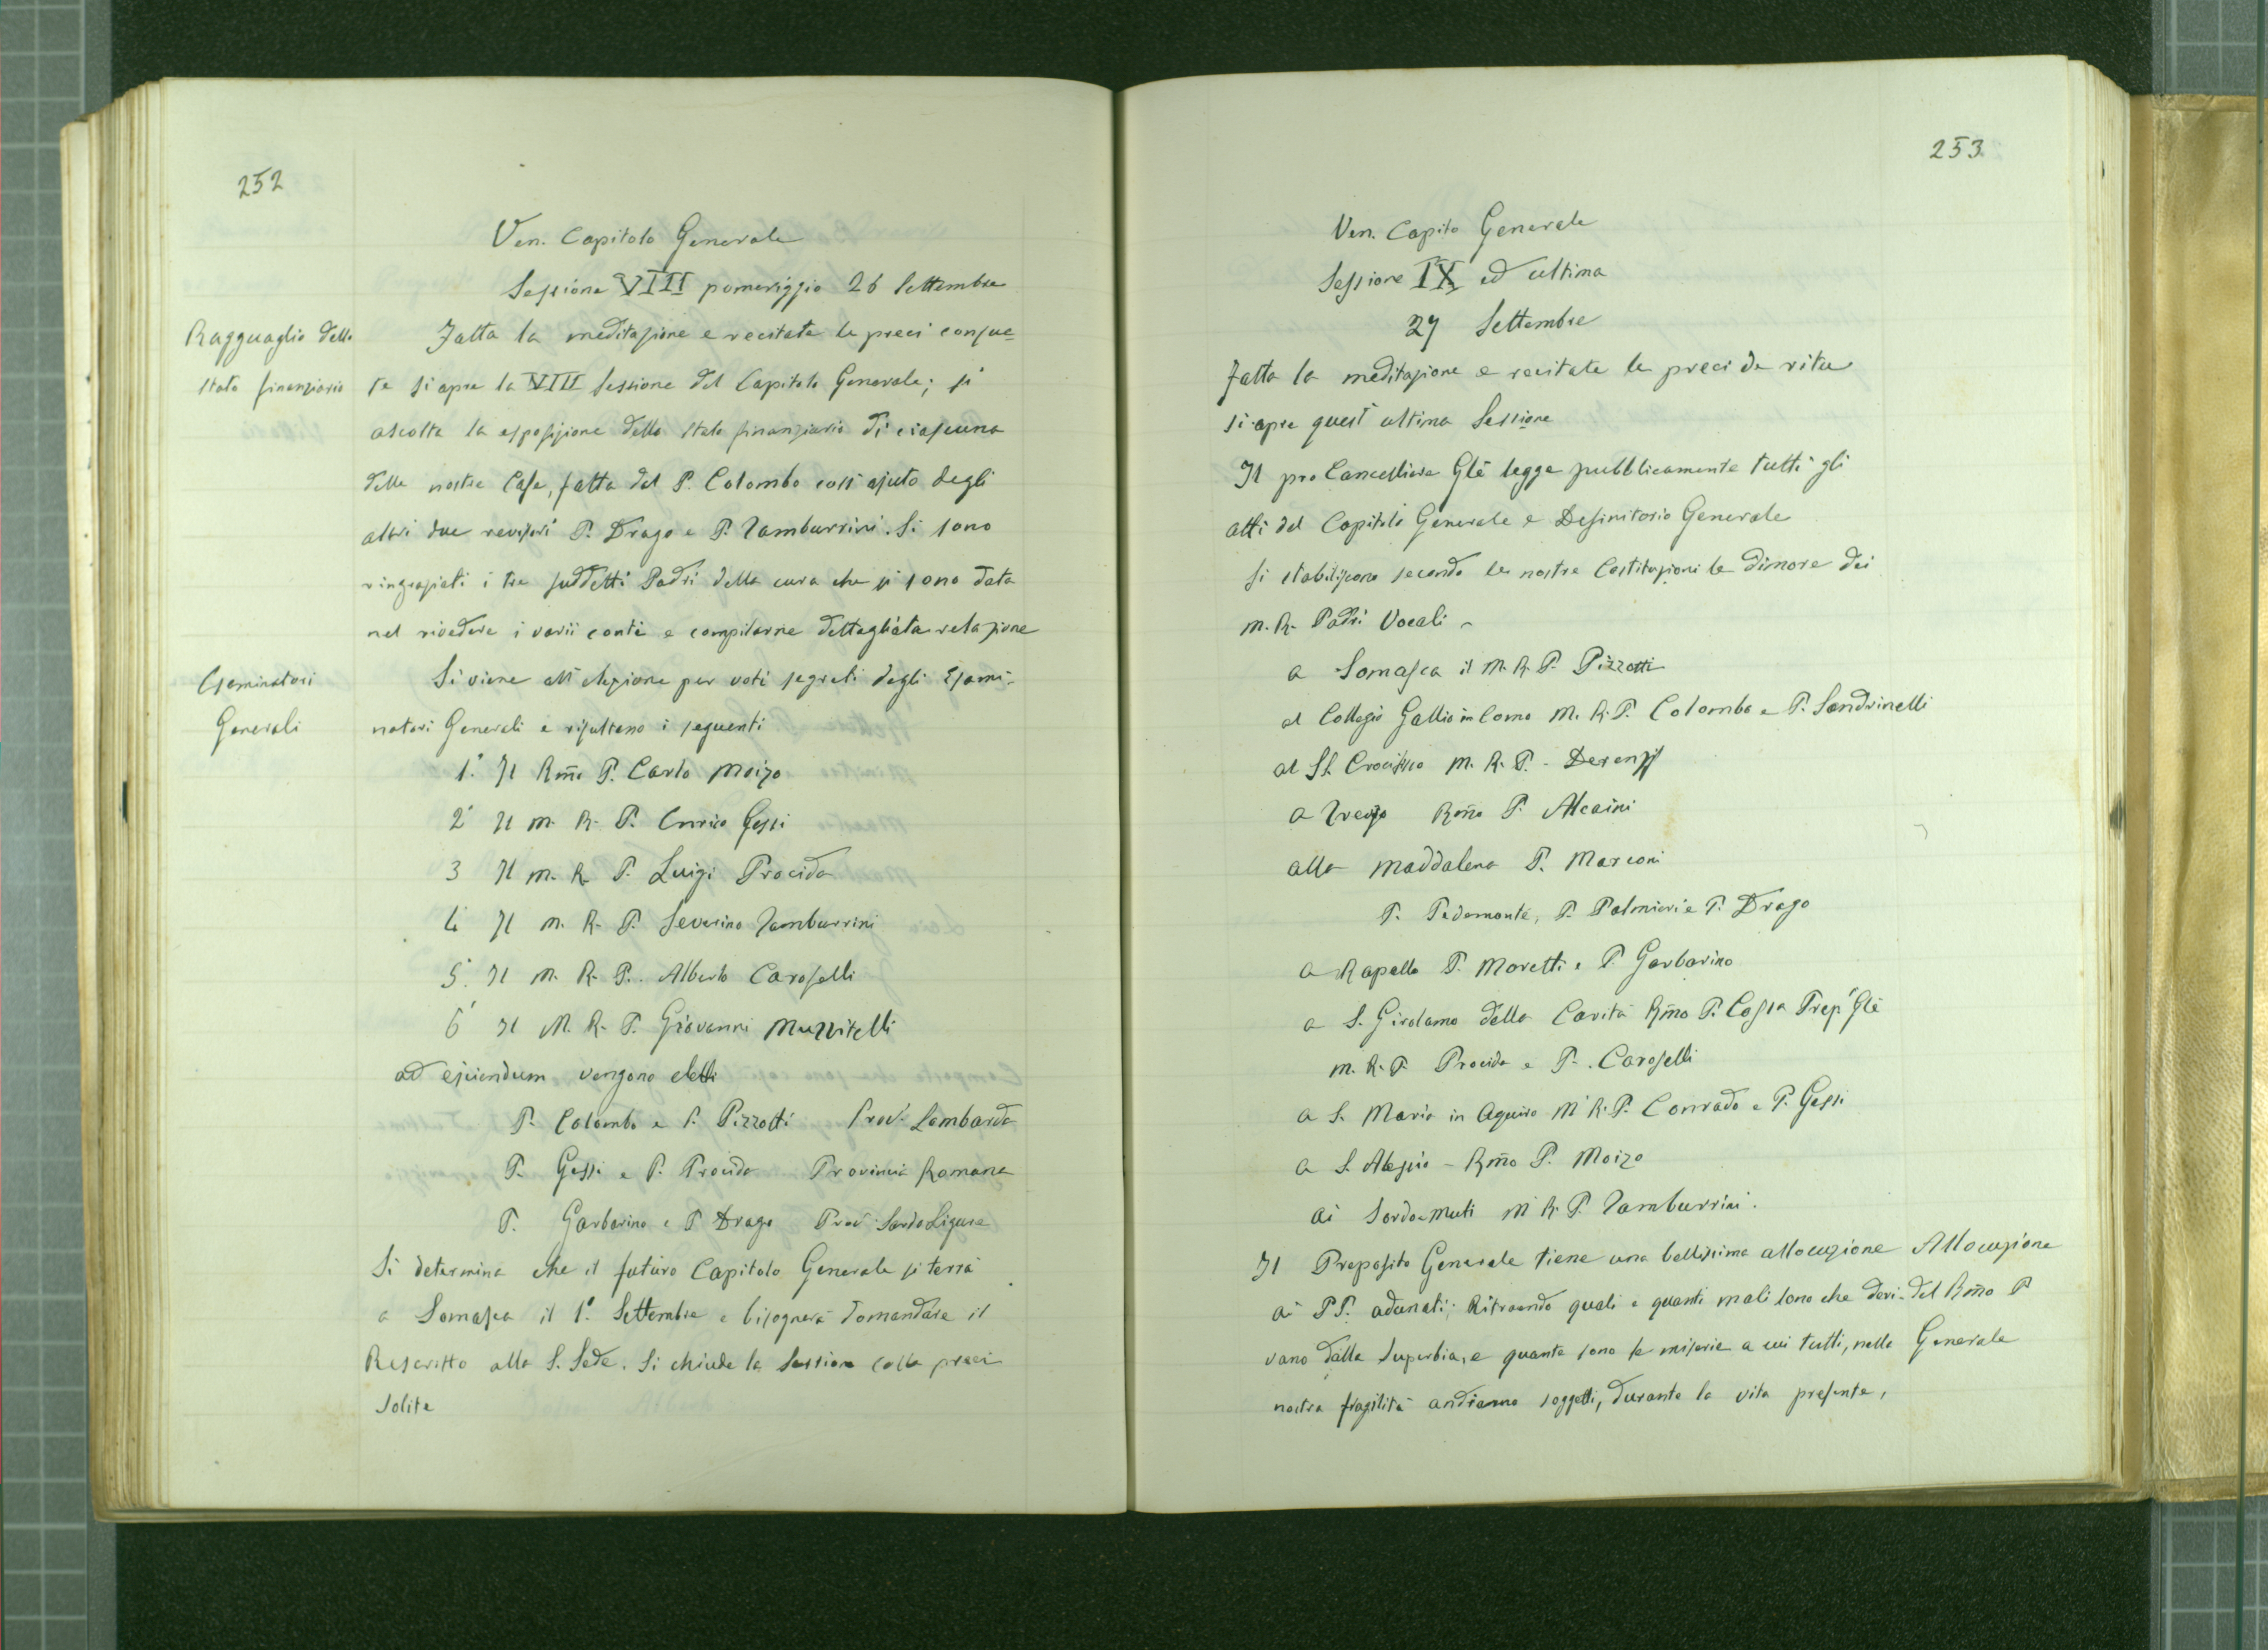 252
Ven. Capitolo Generale
Sessione VIII pomeriggio 26 Settembre
Ragguaglio dello
stato finanziario
Fatta la meditazione e recitate le preci consue=
te si apre la VIII sessione del Capitolo Generale; si
ascolta la esposizione dello stato finanziario di ciascuna
delle nostre Case, fatta dal P. Colombo coll'ajuto degli
altri due revisori P. Drago e P. Tamburrini. Si sono
ringraziati i tre suddetti Padri della cura che si sono data
nel rivedere i varii conti e compilarne dettagliata relazione
Esaminatori
Generali
Si viene all'elezione per voti segreti degli Esami-
natori Generali e risultano i seguenti
1.° Il Rm̃o P. Carlo Moizo
2° Il M. R. P. Enrico Gessi
3 Il M. R. P. Luigi Procida
4° Il M. R. P. Severino Tamburrini
5.° Il M. R. P. Alberto Caroselli
6° Il M. R. P. Giovanni Muzzitelli
ad ejiciendum vengono eletti
P. Colombo e P. Pizzotti Prov. Lombarda
P. Gessi e P. Procida Provincia Romana
P. Garbarino e P. Drago Prov. Sardo Ligure
Si determina che il futuro Capitolo Generale si terrà
a Somasca il 1.° Settembre e bisognerà domandare il
Rescritto alla S. Sede. Si chiude la Sessione colle preci
solite
253
Ven. Capito Generale
Sessione IX ed ultima
27 Settembre
Fatta la meditazione e recitate le preci de ritu
si apre quest'ultima Sessione
Il pro Cancelliere Glẽ legge pubblicamente tutti gli
atti del Capitolo Generale e Definitorio Generale
Si stabiliscono secondo le nostre Costituzioni le dimore dei
M. R. Padri Vocali -
a Somasca il M. R. P. Pizzotti
al Collegio Gallio in Como M. R. P. Colombo e P. Sandrinelli
al SS. Crocifisso M. R. P. - Derenzis
a Treviso Rm̃o P. Alcaini
alla Maddalena P. Marconi
P. Pedemonte, P. Palmieri e P. Drago
a Rapallo P. Moretti e P. Garbarino
a S. Girolamo della Carità Rm̃o P. Cossa Prep. Glẽ
M. R. P. Procida e P. Caroselli
a S. Maria in Aquiro M. R. P. Conrado e P. Gessi
a S. Alessio - Rm̃o P. Moizo
Ai Sordo-Muti M. R. P. Tamburrini.
Il Preposito Generale tiene una bellissima allocuzione
ai PP. adunati; Ritraendo quali e quanti mali sono che deri-
vano dalla Superbia, e quante sono le miserie a cui tutti, nella
nostra fragilità andiamo soggetti, durante la vita presente,
Allocuzione
del Rm̃o P
Generale